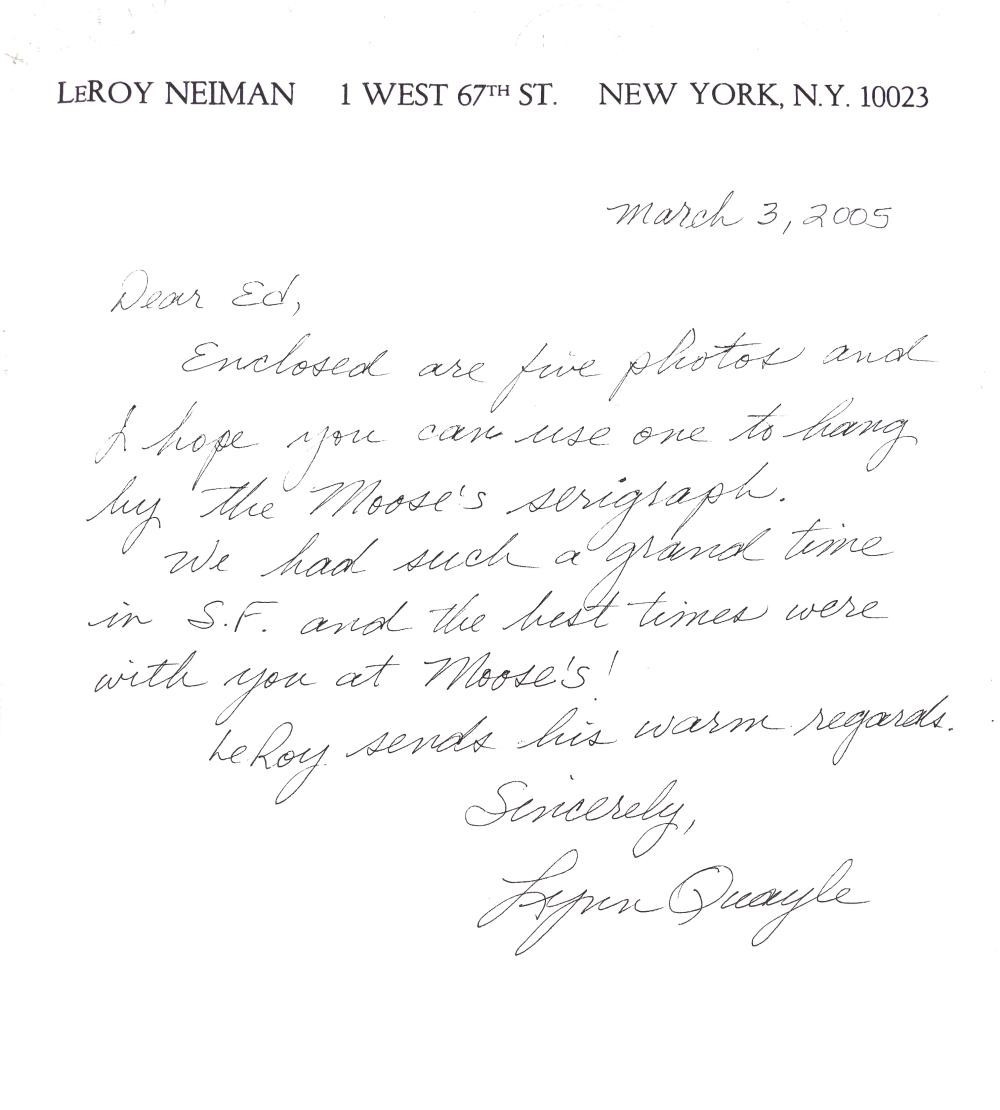 LEROY NEIMAN 1 WEST 67TH ST. NEW YORK, N.Y. 10023
March 3, 2005
Dear Ed,
Enclosed are five photos and
I hope you can use one to hang
by the Moose's serigraph.
We had such a grand time
in S.F. and the best times were
with you at Moose's!
LeRoy sends his warm regards.
Sincerely,
Lynn Quayle